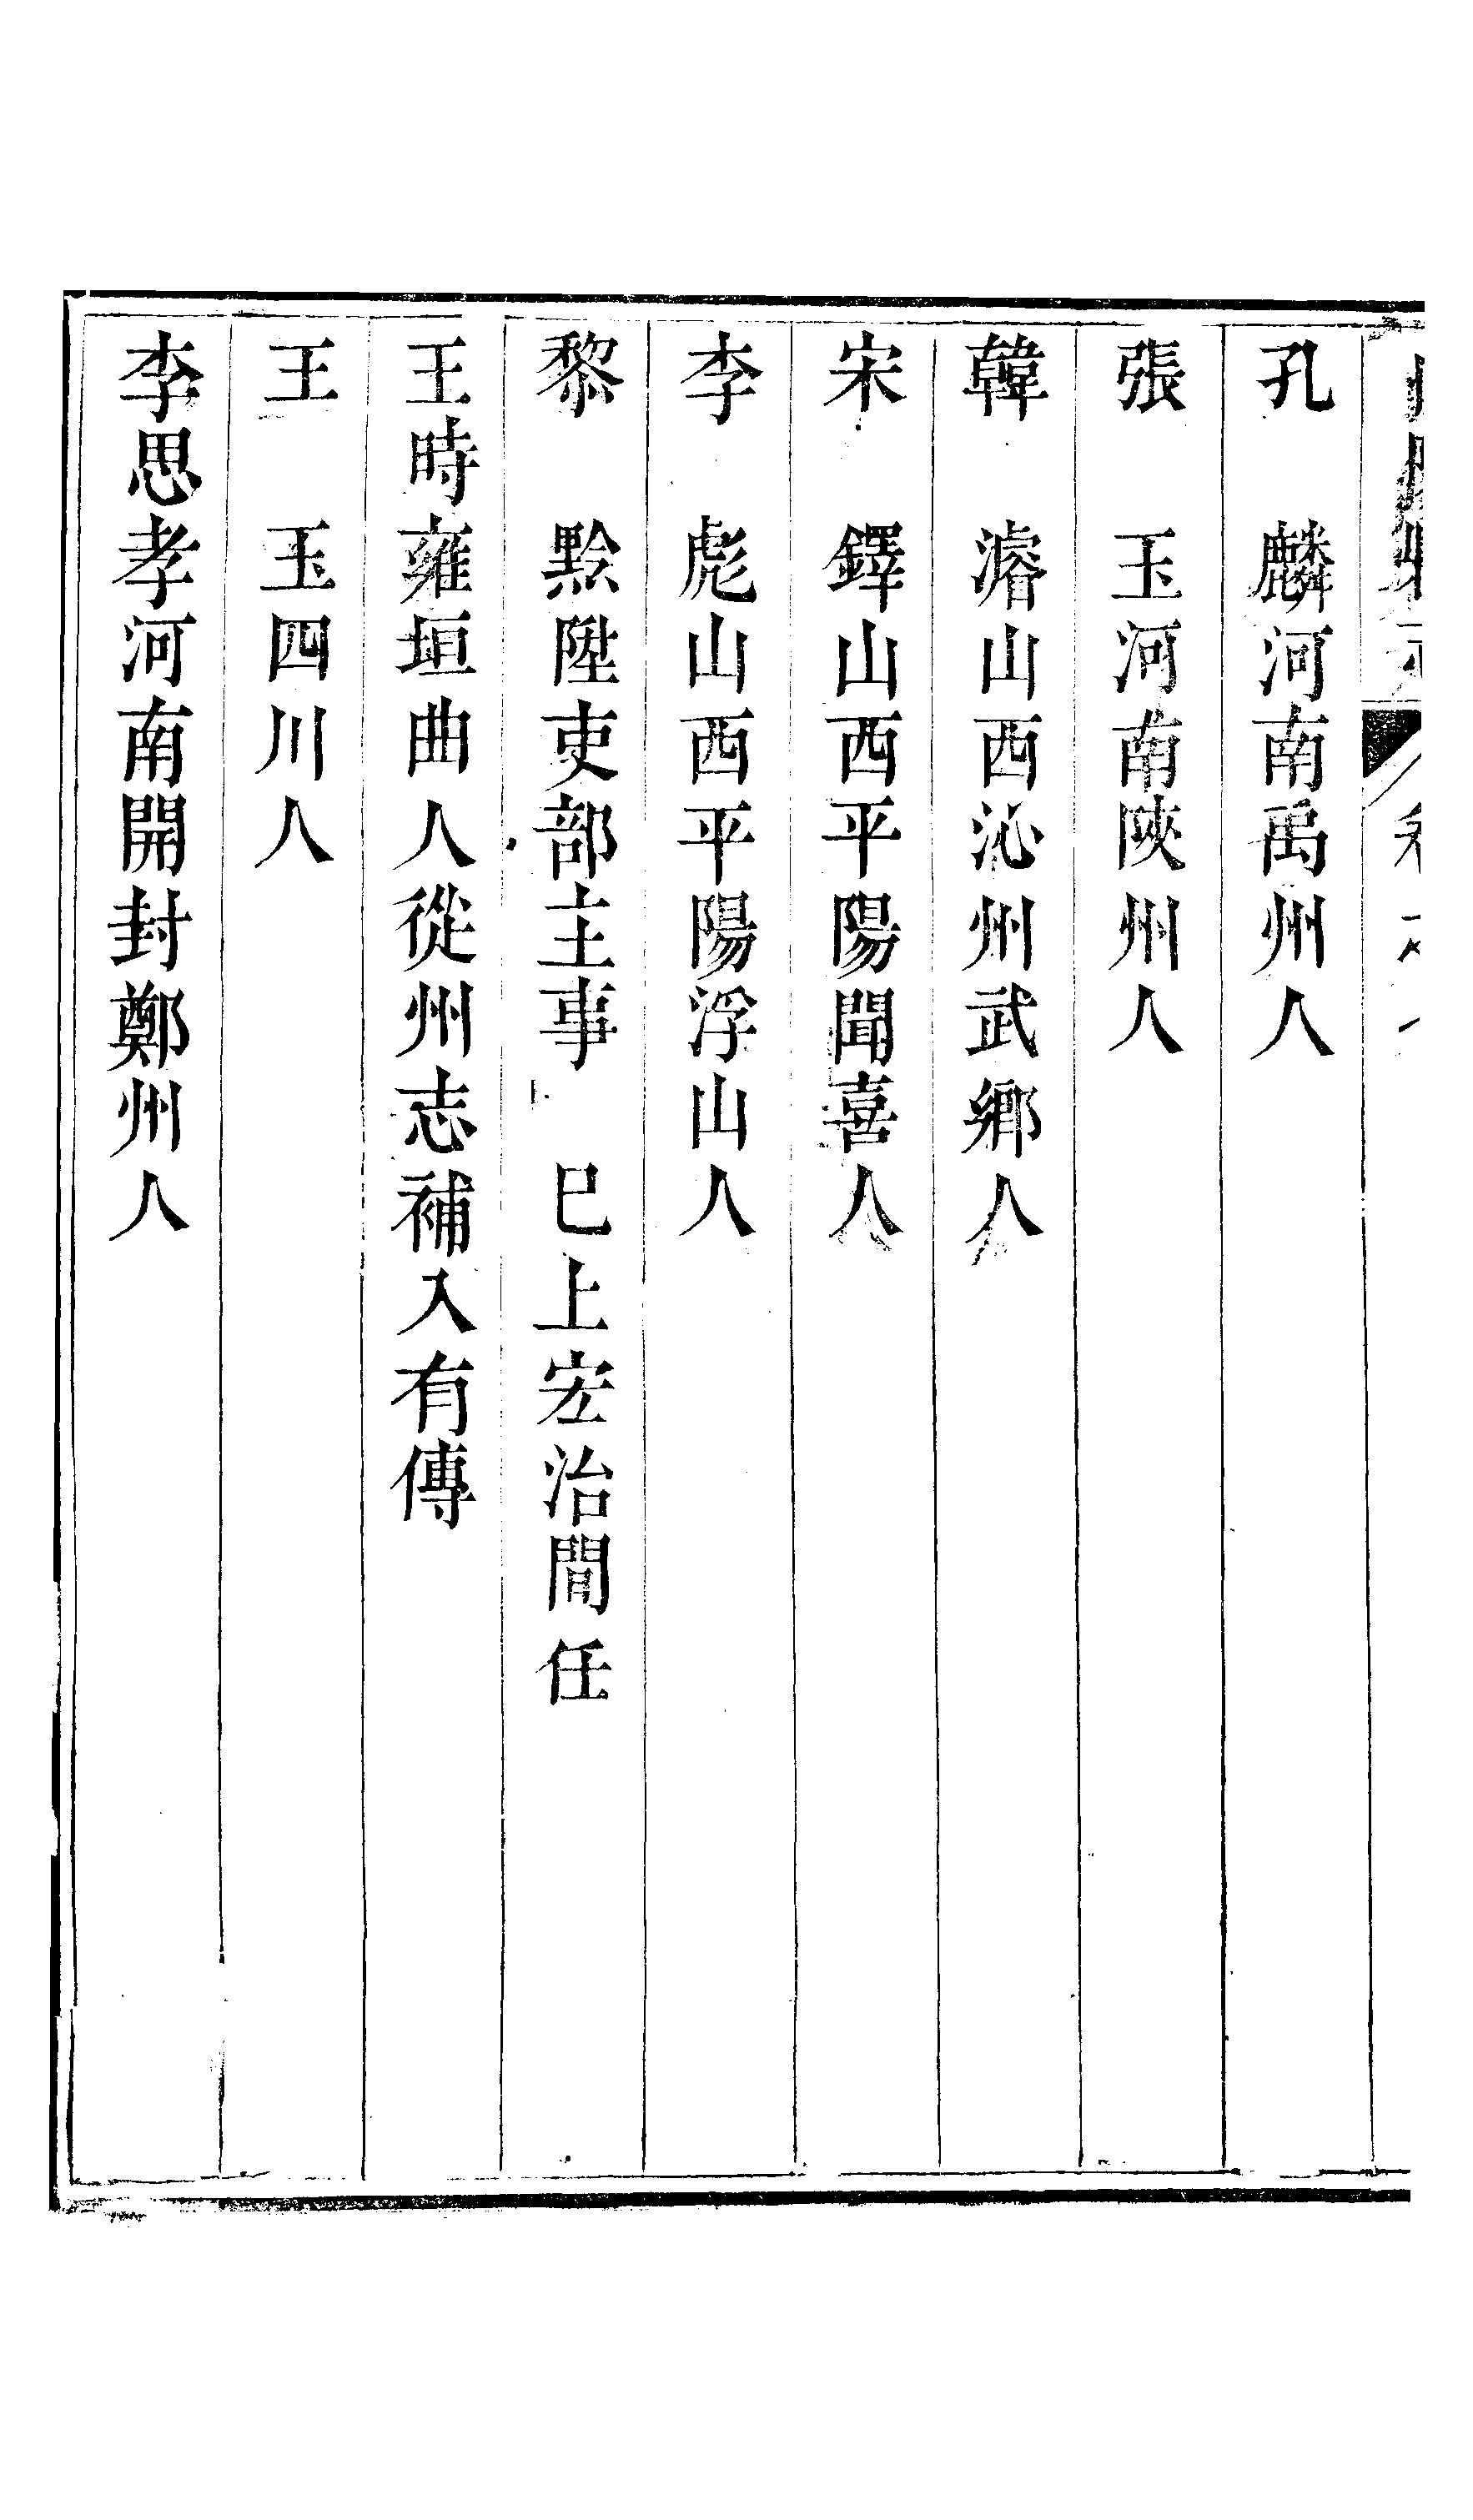 孔　麟河南禹州人
張　玉河南陝州人
韓　濬山西沁州武鄉人
宋　鐸山西平陽聞喜人
李　彪山西平陽浮山人
黎　黙陞吏部主事　已上宏治間任
王時雍垣曲人從州志補入有傳
王　玉四川人
李思孝河南開封鄭州人